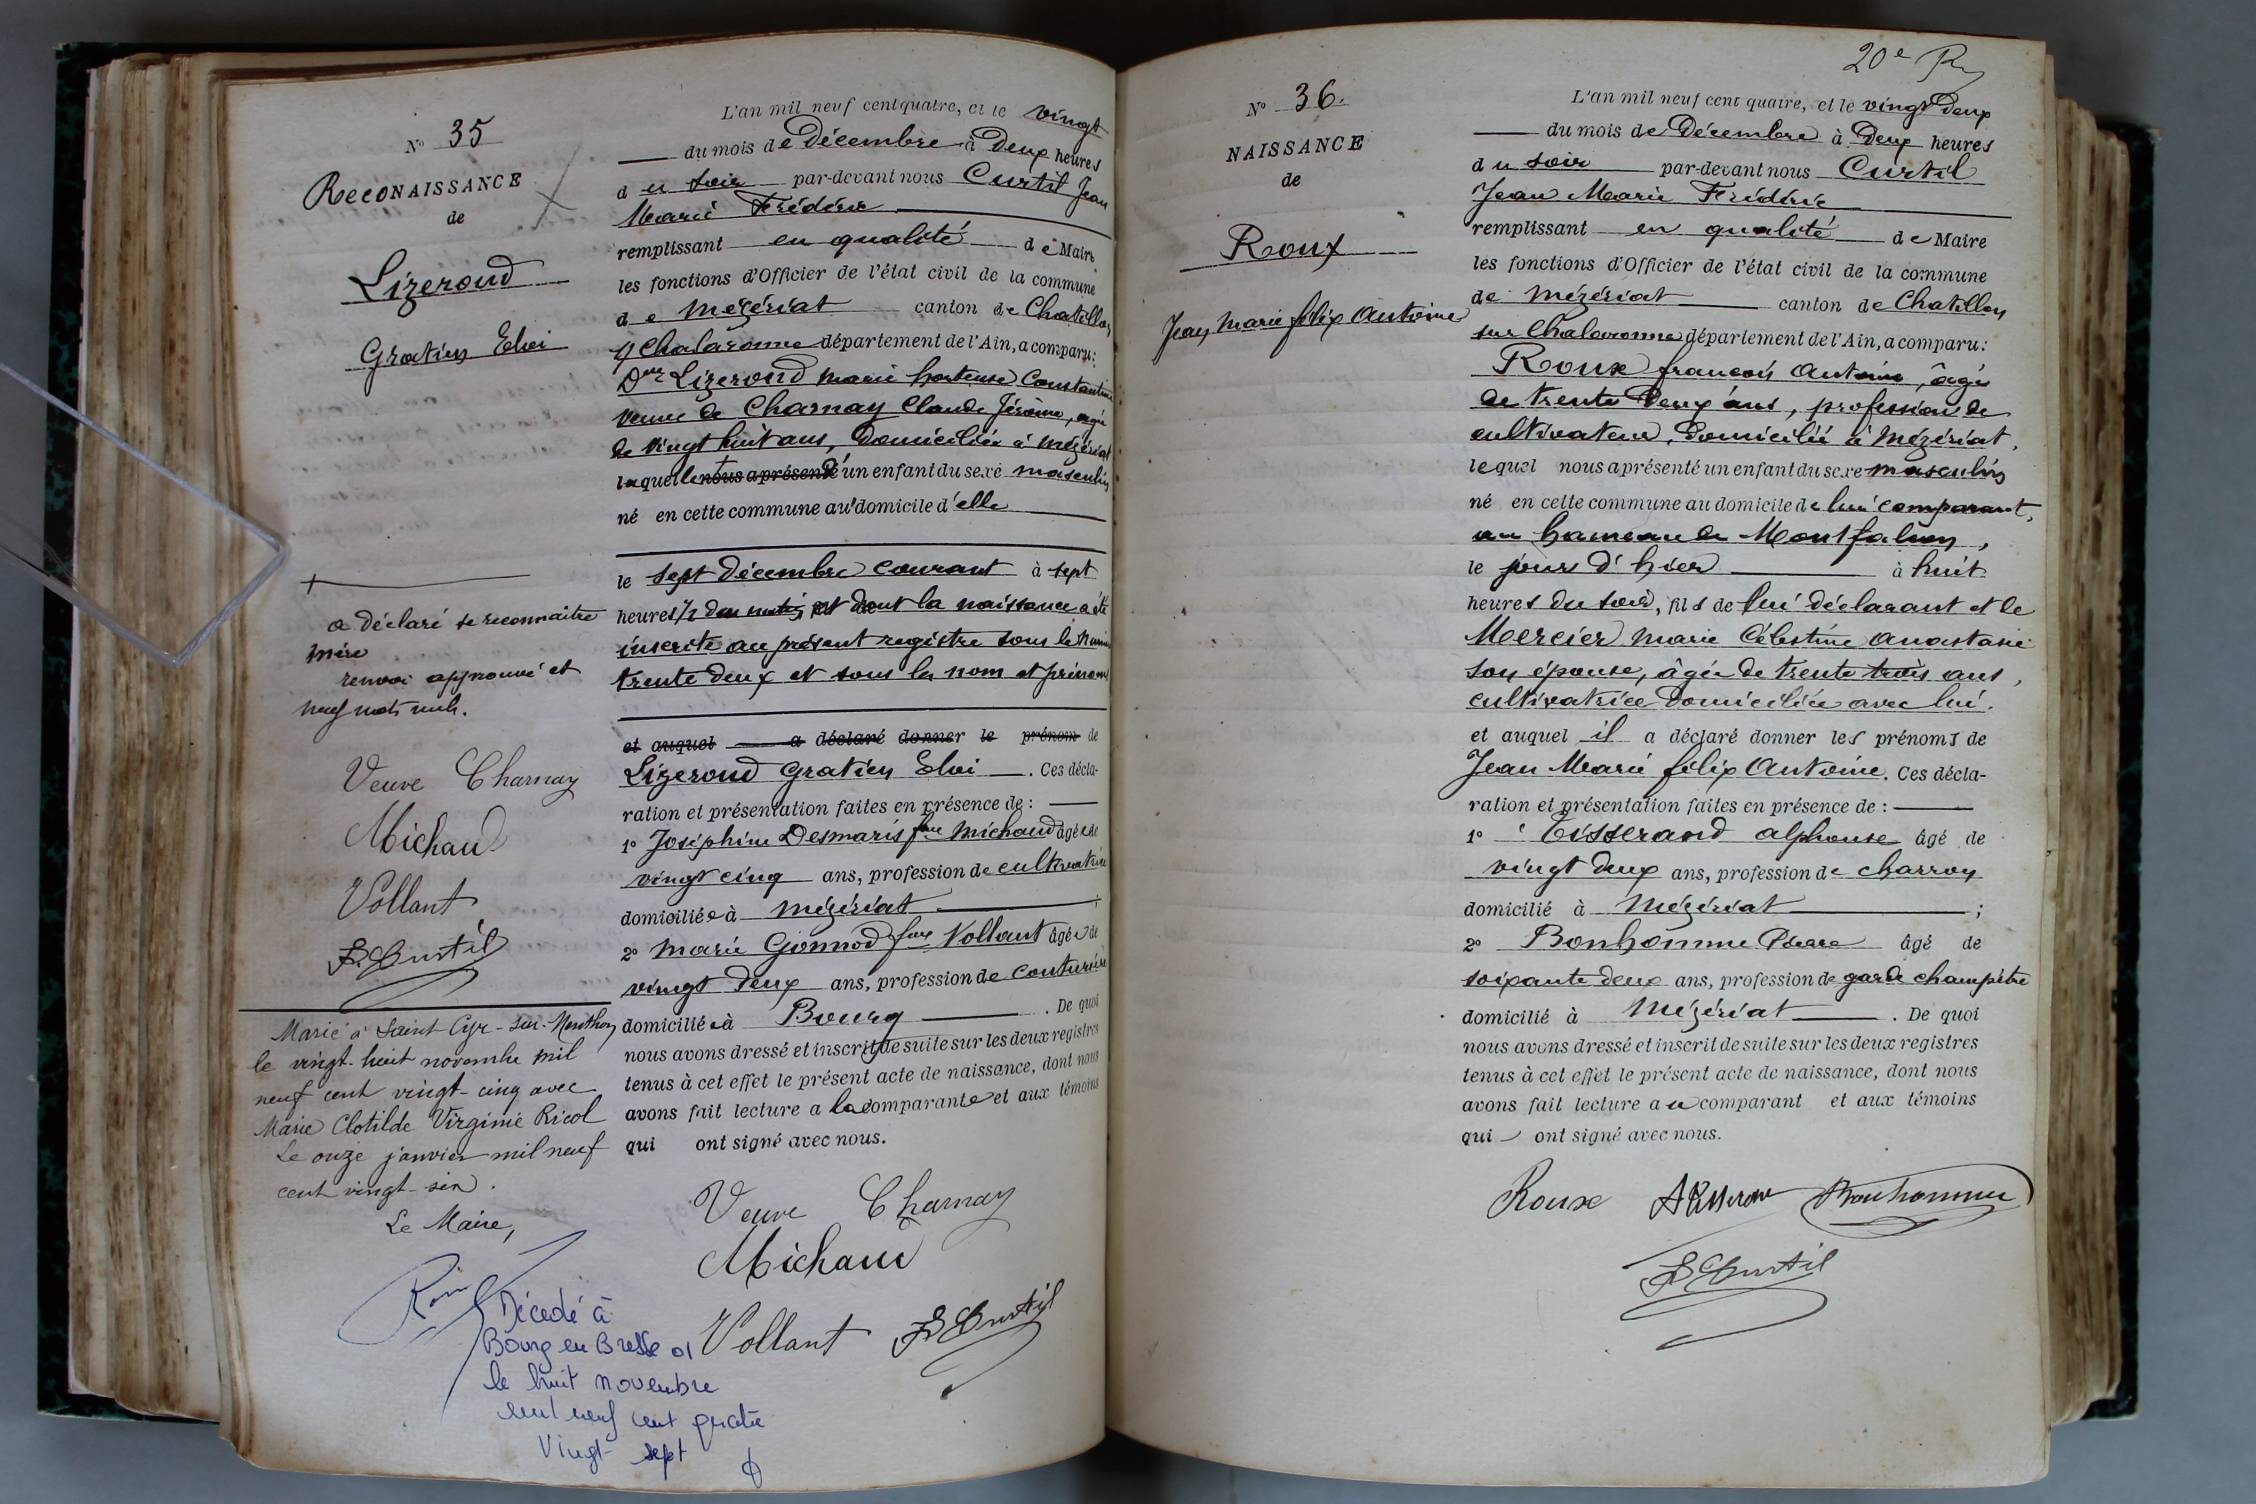 N° 35
ReCONAISSANCE
de
Lizerond
Gratien Eloi
L'an mil neuf cent quatre, et le vingt
du mois de Décembre à Deux heures
du soir par-devant nous Curtil Jean
Marie Frédéric
remplissant en qualité de Maire
les fonctions d'Officier de l'état civil de la commune
de Mézériat canton de Chatillon
s/ Chalaronne département de l'Ain, a comparu:
Dme Lizerond Marie hortense Constantine
veuve de Charnay Claude Jérôme, agée
de vingt huit ans, domiciliée à Mézériat
laquelle nous a présenté un enfant du sexe masculin
né en cette commune au domicile d'elle
le sept Décembre courant à sept
heures 1/2 du matin, et dont la naissance a été
inscrite au présent registre sous le numéro
trente deux et sous les nom et prénoms
et auquel a déclaré donner le prénom de
Lizerond Gratien Eloi. Ces décla-
ration et présentation faites en présence de :
1° Joséphine Desmaris fme Michaud âgée de
vingt cinq ans, profession de cultivatrice
domiciliée à Mézériat
2° Marie Gonnod fme Vollant âgée de
vingt deux ans, profession de couturière
domiciliée à Bourg. De quoi
nous avons dressé et inscrit de suite sur les deux registres
tenus à cet effet le présent acte de naissance, dont nous
avons fait lecture a la comparante et aux témoins
qui ont signé avec nous.
Veuve Charnay
Michaud
Vollant Curtil
a déclaré se reconnaître
mère
renvoi approuvé et
neuf mots nuls.
Veuve Charnay
Michaud
Vollant
Curtil
Marié à Saint Cyr-sur-Menthon
le vingt-huit novembre mil
neuf cent vingt-cinq avec
Marie Clotilde Virginie Ricol
Le onze janvier mil neuf
cent vingt-six.
Le Maire,
Décédé à
Bourg en Bresse 01
le huit novembre
mil neuf cent quatre
vingt sept
20e
N° 36.
NAISSANCE
de
Roux
Jean Marie félix Antoine
L'an mil neuf cent quatre, et le vingt Deux
du mois de Décembre à Deux heures
du soir par-devant nous Curtil
Jean Marie Frédéric
remplissant en qualité de Maire
les fonctions d'Officier de l'état civil de la commune
de Mézériat canton de Chatillon
sur Chalaronne département de l'Ain, a comparu:
Roux françois Antoine, âgé
de trente Deux ans, profession de
cultivateur, domicilié à Mézériat,
lequel nous a présenté un enfant du sexe masculin
né en cette commune au domicile de lui comparant,
au hameau de Montfalcon,
le jour d'hier à huit
heures du soir, fils de lui déclarant et de
Mercier Marie Célestine Anastasie
son épouse, âgée de trente trois ans,
cultivatrice domiciliée avec lui.
et auquel il a déclaré donner les prénoms de
Jean Marie félix Antoine. Ces décla-
ration et présentation faites en présence de :
1° Tisserand alphonse âgé de
vingt deux ans, profession de charron
domicilié à Mézériat ;
2° Bonhomme Pierre âgé de
soixante deux ans, profession de garde champêtre
domicilié à Mézériat. De quoi
nous avons dressé et inscrit de suite sur les deux registres
tenus à cet effet le présent acte de naissance, dont nous
avons fait lecture au comparant et aux témoins
qui ont signé avec nous.
Roux ATisserand Bonhomme
Curtil